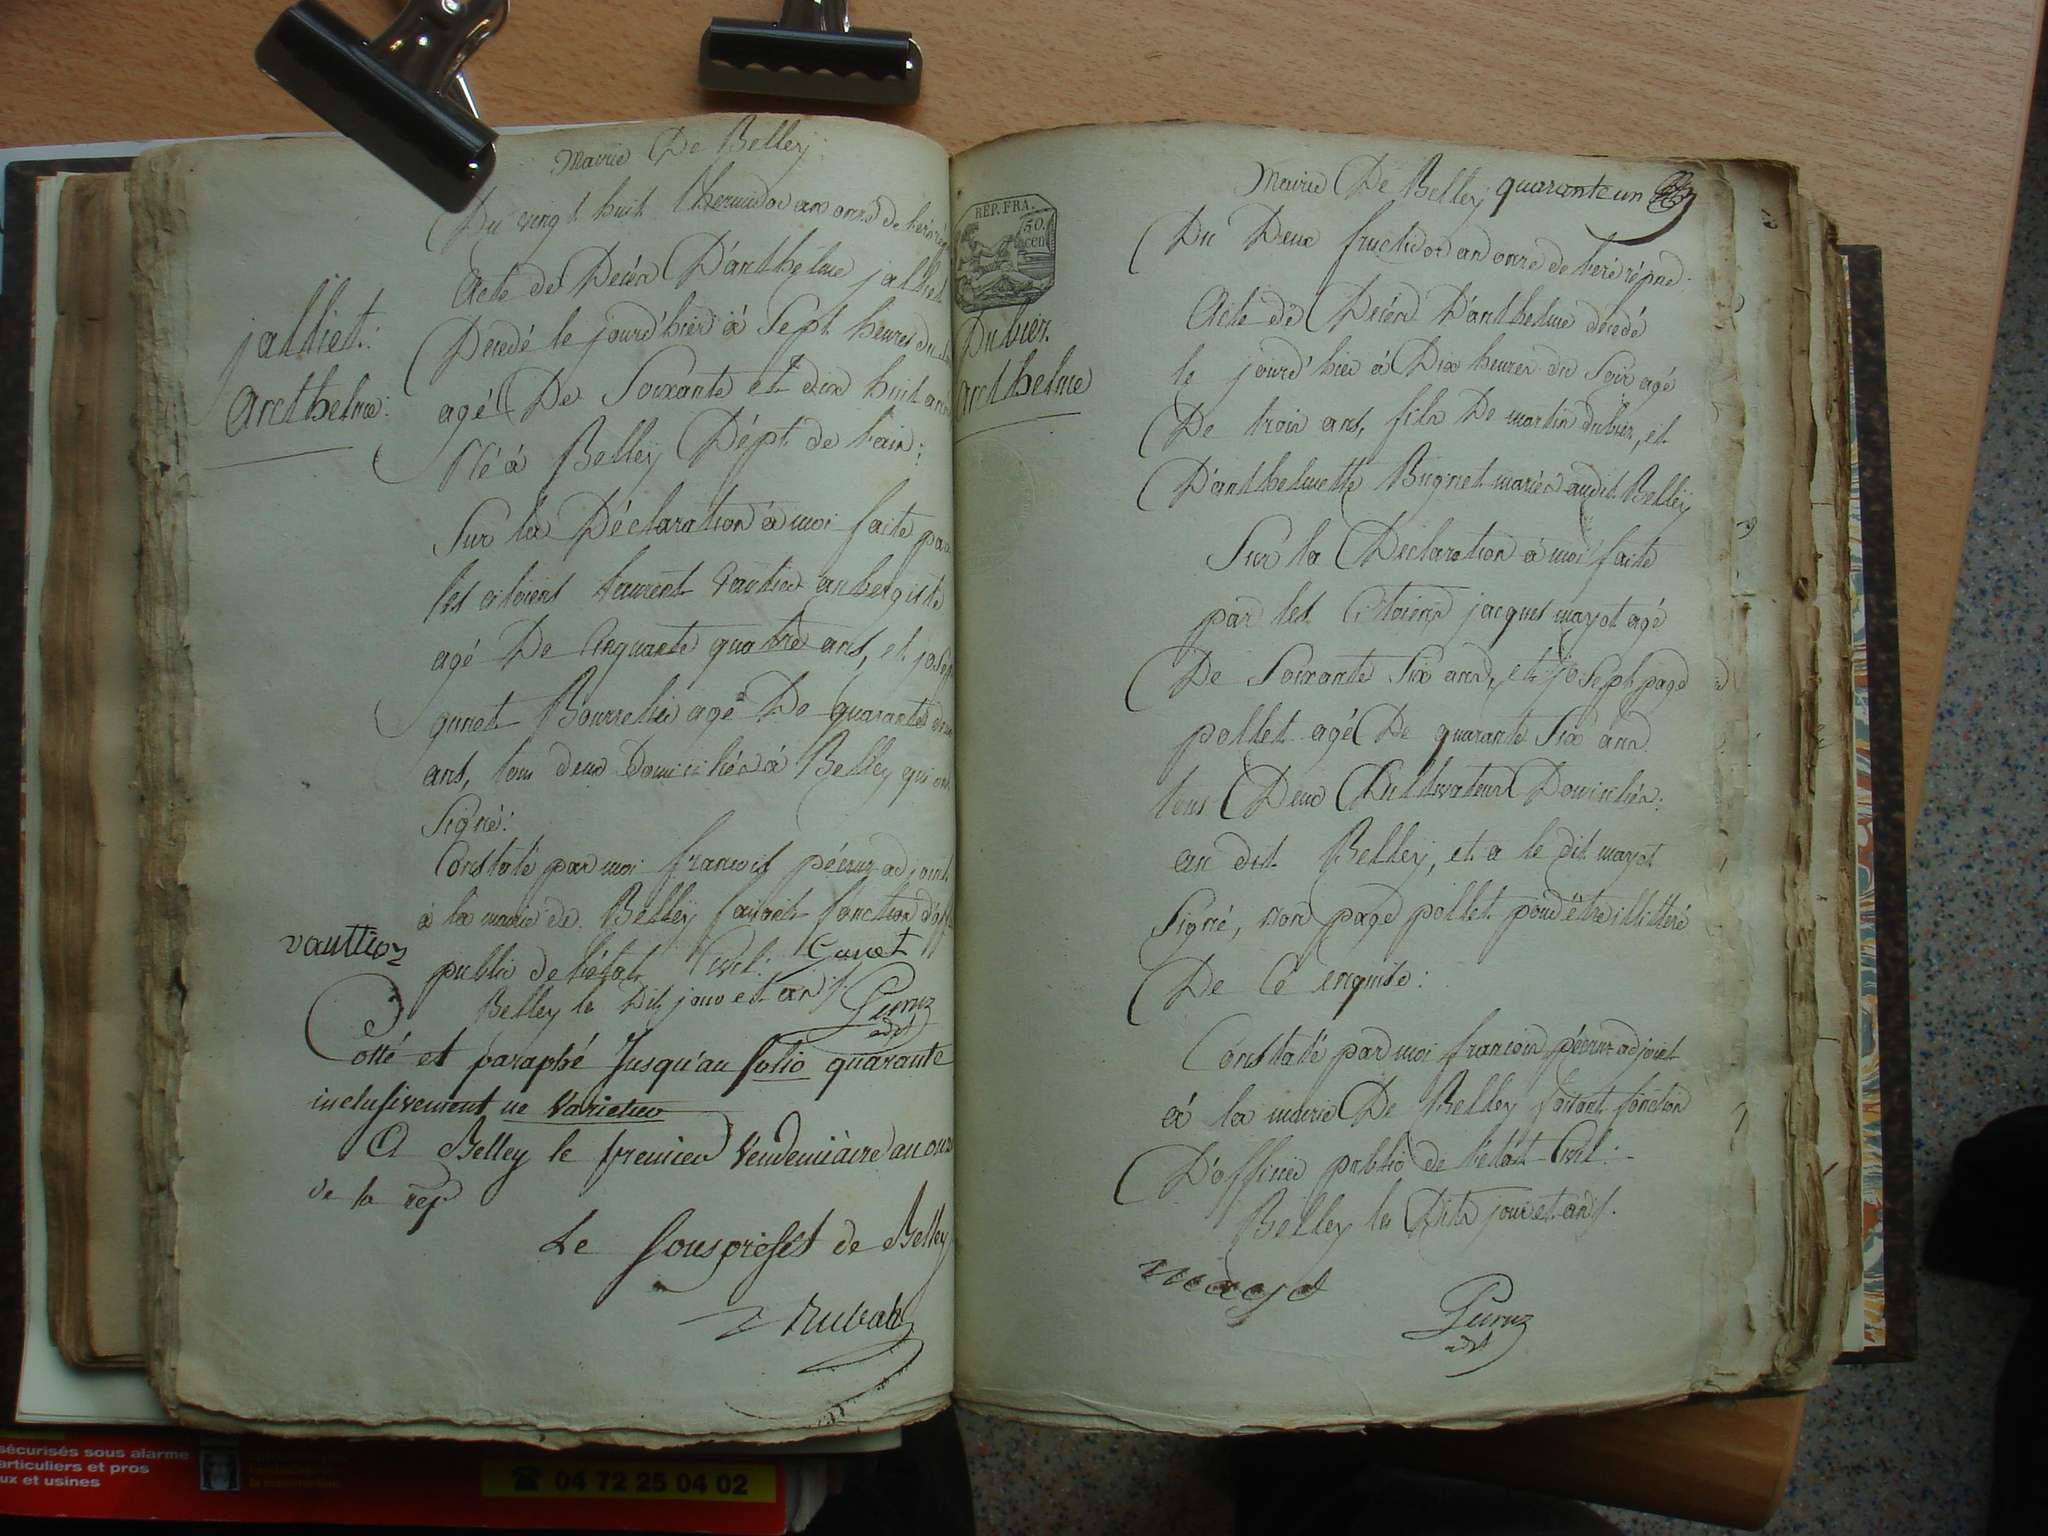 Mairie De Belley
Du vingt huit thermidor an onze de l'ère
Acte de Décès D'anthelme jalliet
Décédé le jourd'hier à Sept heures du
agé De Soixante et dix huit ans
Né à Belley Dépt. de l'ain:
Sur la Déclaration à moi faite par
les citoiens laurent vautier aubergiste
agé De Cinquante quatre ans, et joseph
gunet Bourrelier agé De quarante
ans, tous deux Domiciliés à Belley qui ont
Signé:
Constaté par moi françois péruz adjoint
à la mairie de Belley faisant fonction d'off
public de l'état Civil:
Belley les Dits jour et an
jalliet:
anthelme:
vauttier
Gunet
Peruz
adjt
Cotté et paraphé Jusqu'au folio quarante
inclusivement ne varietur
A Belley le premier Vendemiaire an onze
de la rep
Le Sousprefet de Belley
Rubat
REP. FRA.
50.
cen
Mairie De Belley quarante un
Du Deux fructidor an onze de l'ere répne.
Acte de Décès D'anthelme décédé
le jourd'hier à Dix heures du Soir agé
De trois ans, fils De martin dubier, et
D'anthelmette Bugnet mariés audit Belley
Sur la Déclaration à moi faite
par les Citoiens jacques mayot agé
De Soixante Six ans, et joseph page
pollet agé De quarante Six ans
tous Deux Cultivateurs Domiciliés:
au dit Belley, et a le dit mayot
Signé, non page pollet pour être illittéré
De Ce enquise:
Constaté par moi françois péruz adjoint
à la mairie De Belley faisant fonction
D'officier public de l'état Civil:
Belley les Dits jour et an
Dubier.
anthelme
mayot
Peruz
adjt
sécurisés sous alarme
articuliers et pros
ux et usines
04 72 25 04 02